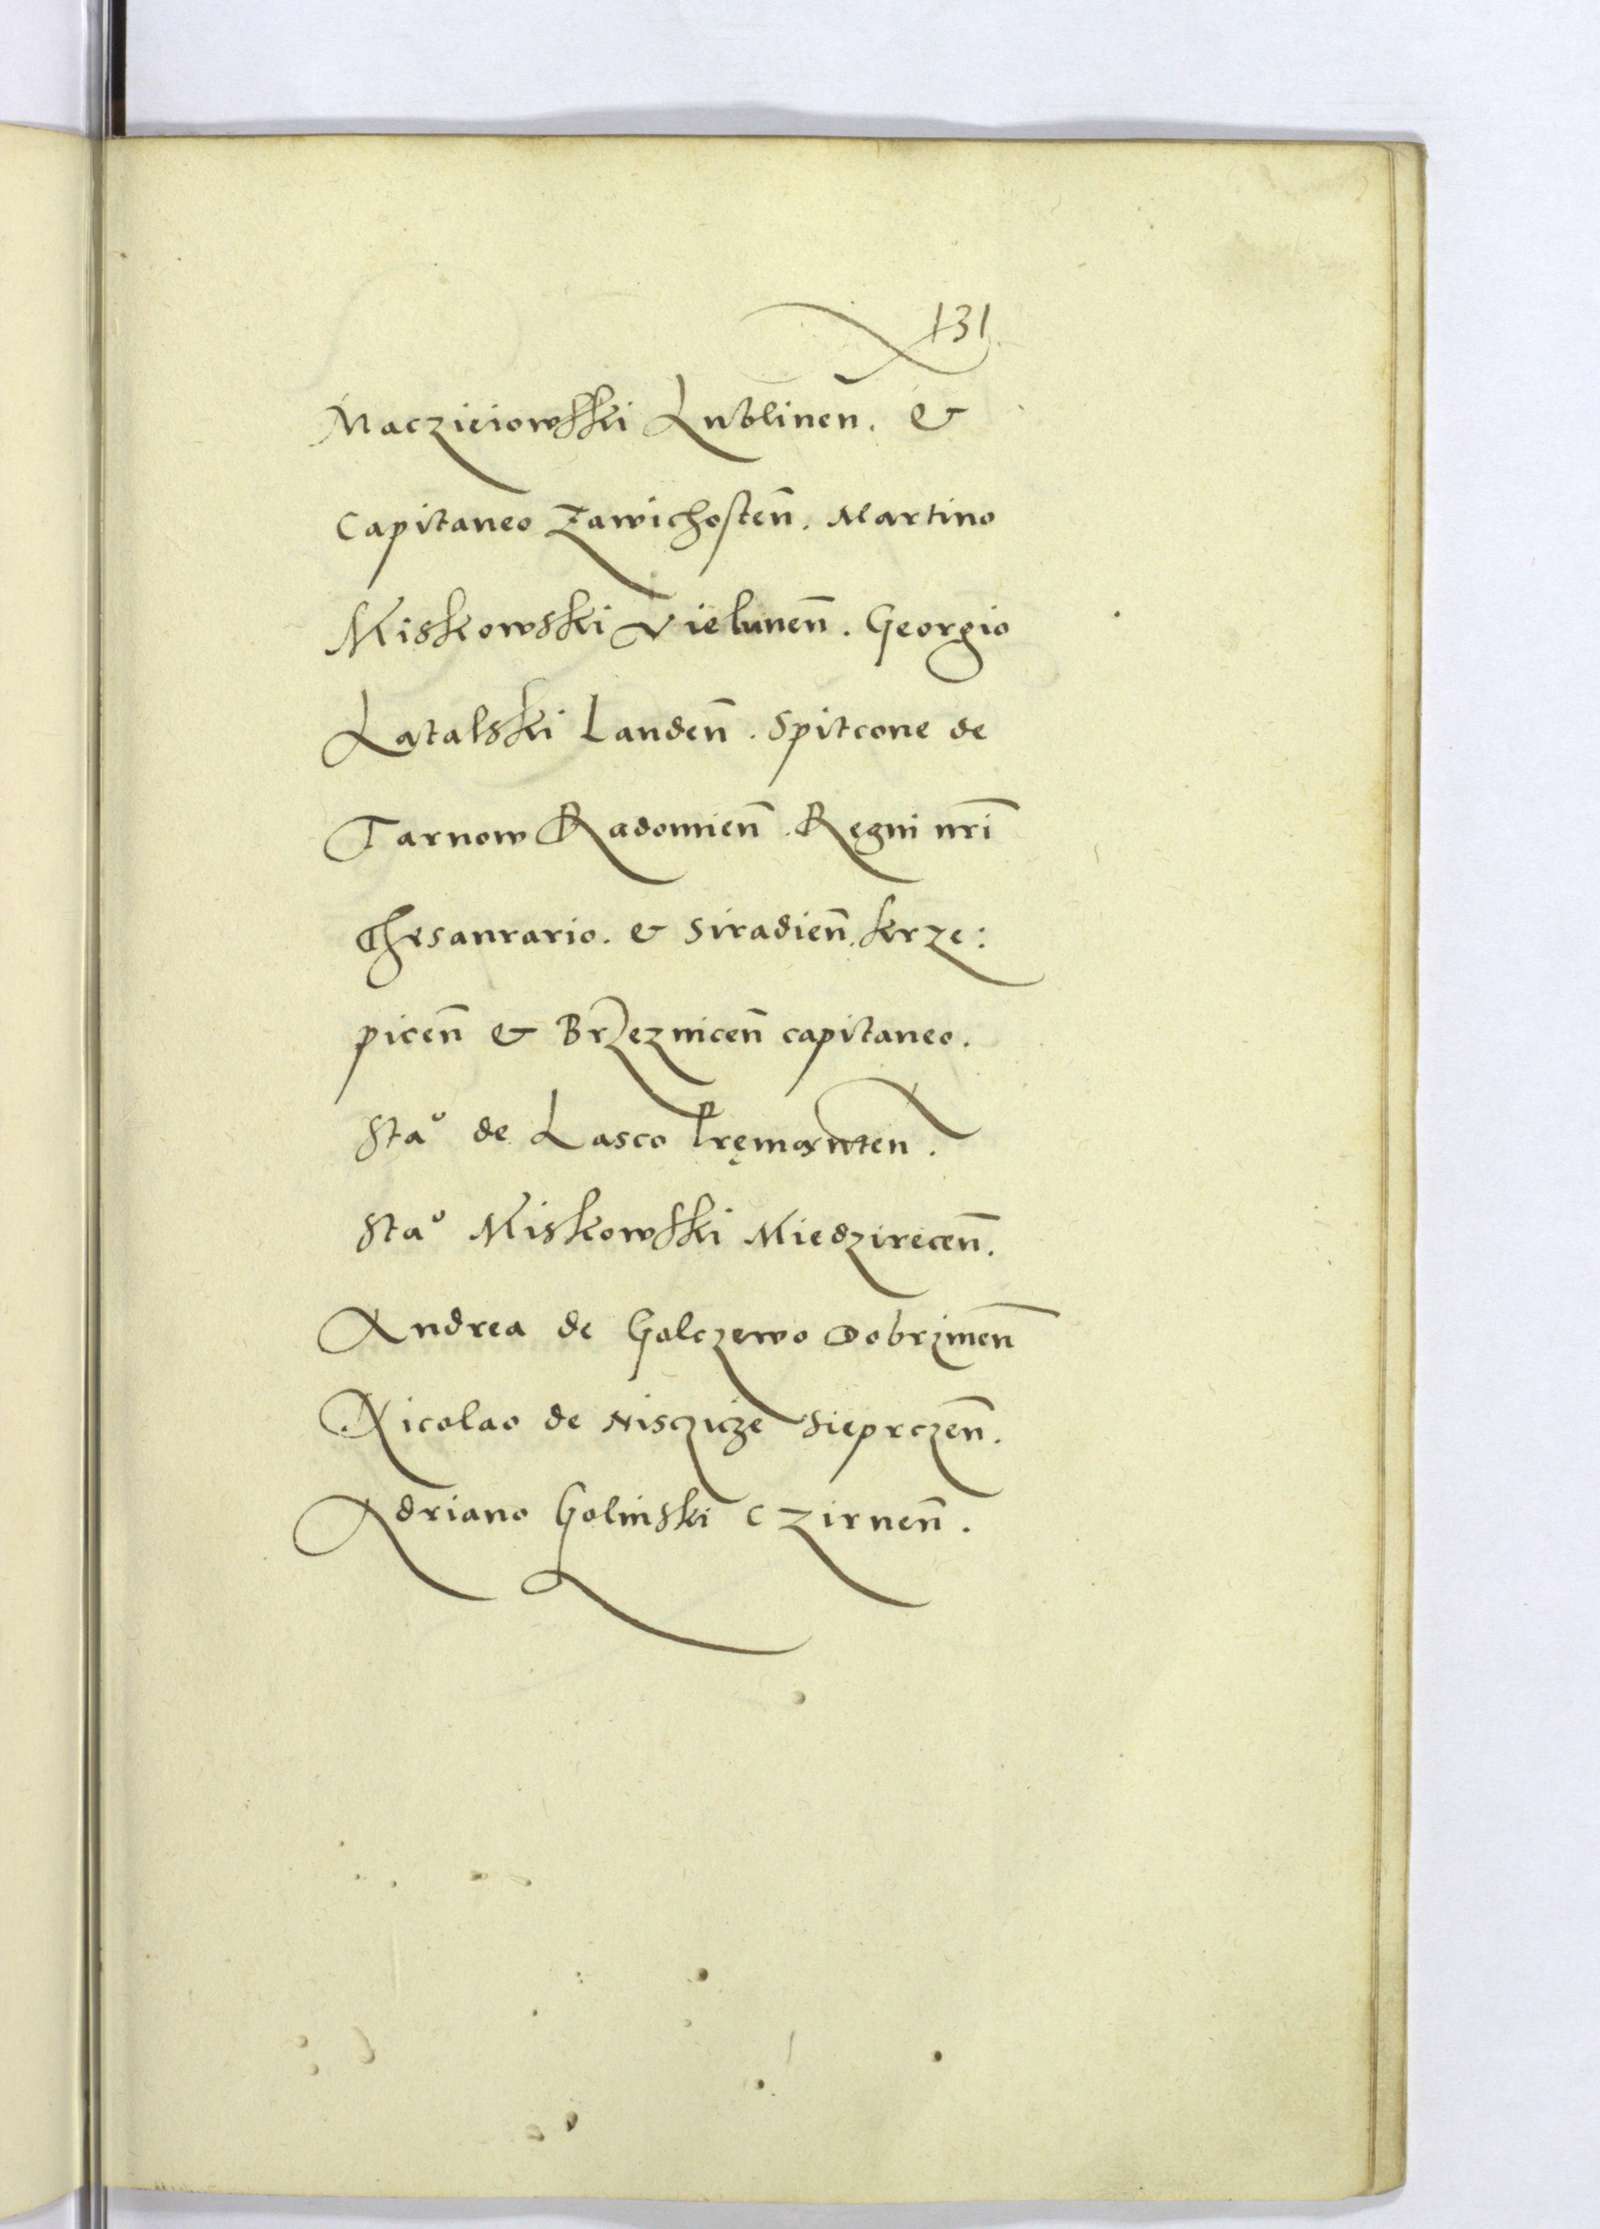 131
Maczieiowski Lublinen̄. &
Capitaneo Zawichosten̄. Martino
Miskowski Vielunen̄. Georgio
Latalski Landen̄. Spitcone de
Tarnow Radomien̄. Regni nr̄i
Thesaurario. & Siradien̄. krze:
picen̄ & Brzeznicen̄ capitaneo.
Staº de Lasco
Staº Miskowski Miedzirecen̄.
Andrea de Golczewo Dobrzinen̄
Nicolao de Nisczicze Sieprczen̄.
Adriano Golinski Czirnen̄.